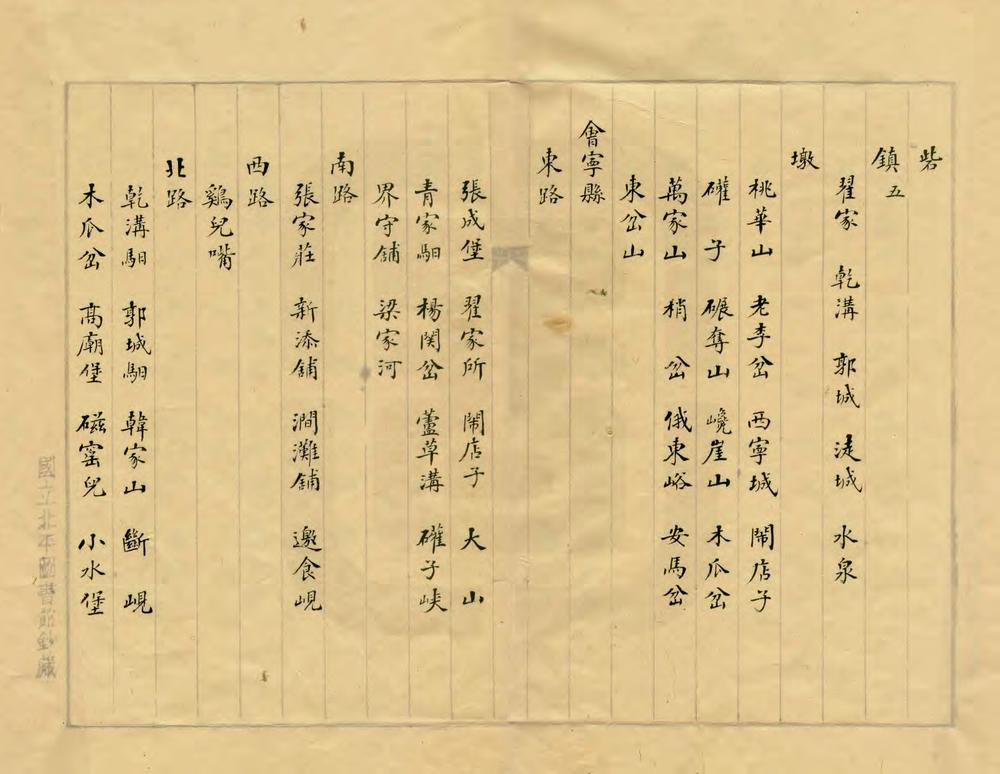 砦
鎮五
翟家 乾溝 郭城 淒城 水泉
墩
桃華山 老李岔 西寧城 閙店子
礶子 碾夲山 巉崖山 木瓜岔
萬家山 稍岔 俄東峪 安馬岔
東岔山
會寧縣
東路
張成堡 翟家所 閙店子 大山
青家馹 楊関岔 蘆草溝 礶子峽
界守舖 梁家河
南路
張家莊 新添舖 澗灘舖 邀食峴
西路
鷄兒嘴
北路
乾溝馹 郭城馹 韓家山 斷峴
木瓜岔 髙廟堡 磁窰兒 小水堡
國立北平圖書館鈔藏